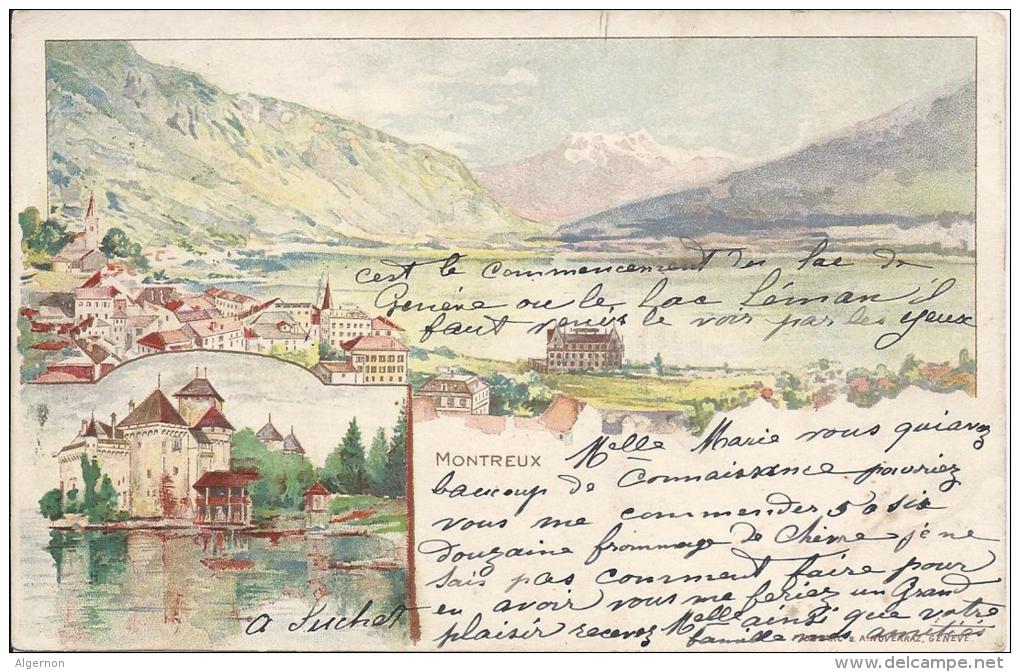 c'est le commencement du lac de
Genève ou le lac Léman il
faut venir le voir par les yeux
MONTREUX
Melle Marie vous qui avez
baucoup de Connaissance pouriez
vous me commender 5 o sis
Douzaine frommage de Chèvre je ne
sais pas comment faire pour
en avoir vous me feriez un Grand
plaisir recevez Melle ainsi que votre
famille mes amitiés
A Suchet
& A. NOVERRAZ, GENÈVE
Algernon
delcampe.net